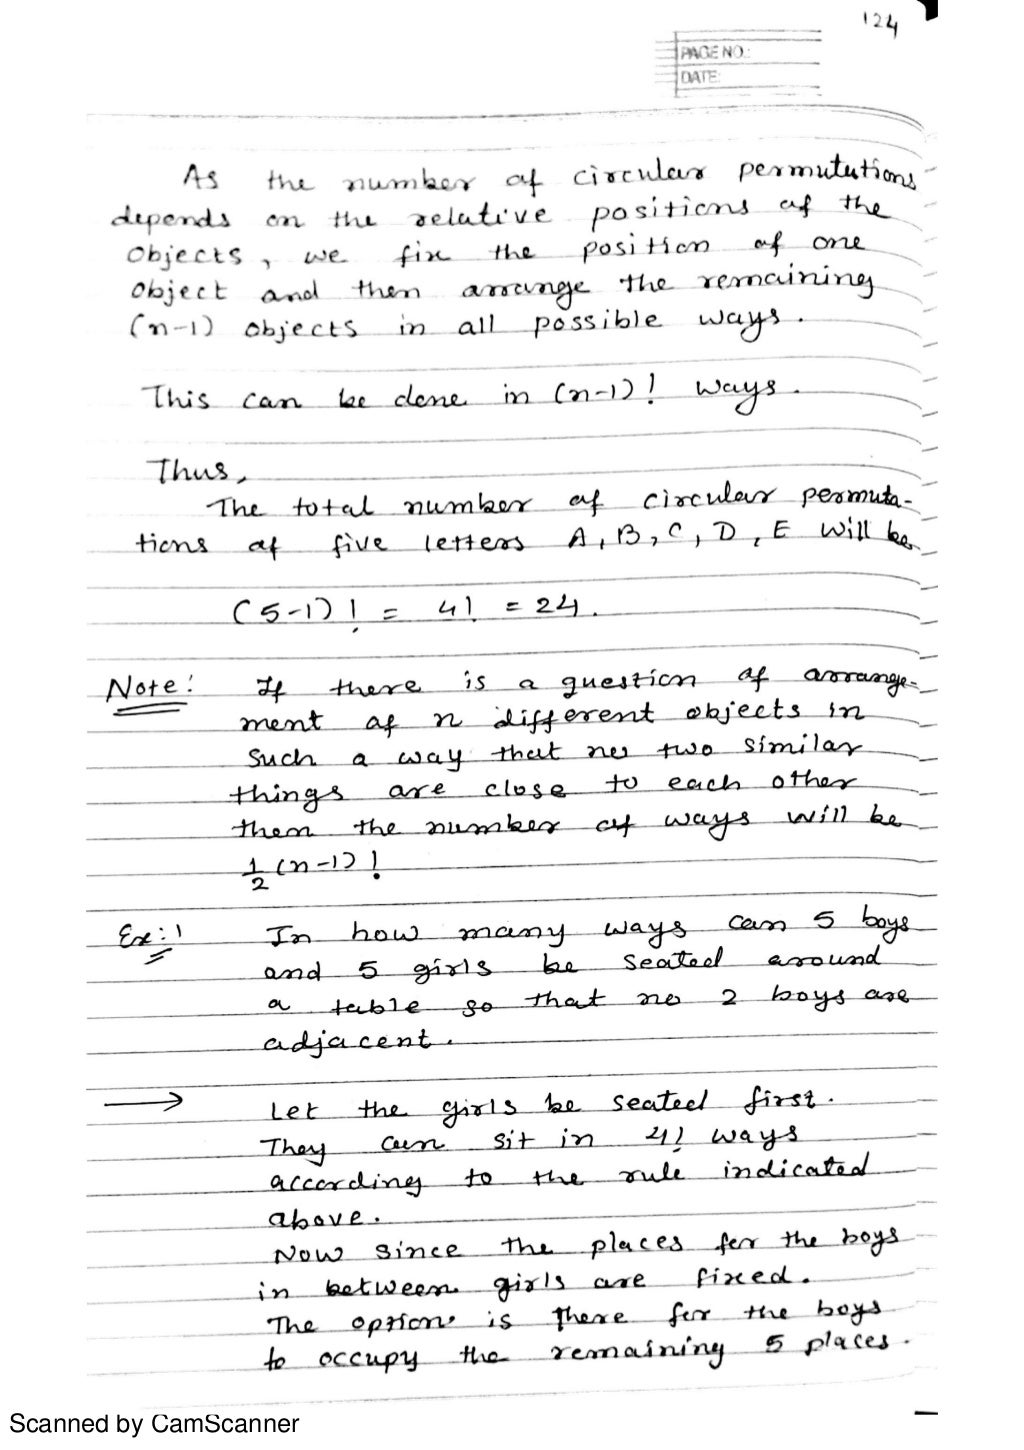 124
PAGE NO.:
DATE:
As the number of circular permutations
depends on the relative positions of the
Objects, we fix the position of one
Object and then arrange the remaining
(n-1) objects in all possible ways.
This can be done in (n-1)! ways.
Thus,
The total number of circular permuta-
tions of five letters A, B, C, D, E will be
(5-1)! = 4! = 24.
Note: If there is a question of arrange-
ment of n different objects in
Such a way that no two similar
things are close to each other
then the number of ways will be
1/2 (n-1)!
Ex:1 In how many ways can 5 boys
and 5 girls be seated around
a table so that no 2 boys are
adjacent.
→ Let the girls be seated first.
They can sit in 4! ways
according to the rule indicated
above.
Now since the places for the boys
in between girls are fixed.
The option is there for the boys
to occupy the remaining 5 places.
Scanned by CamScanner